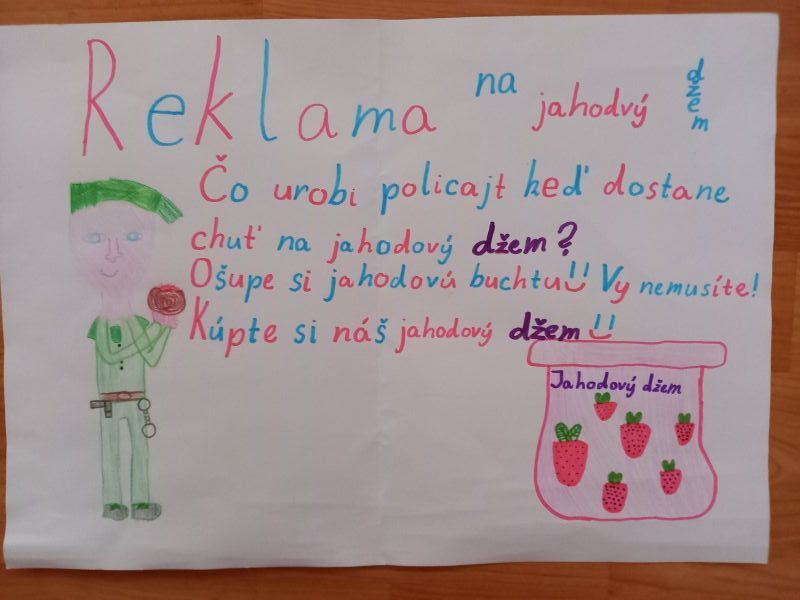 Reklama na jahodvý džem
Čo urobi policajt keď dostane
chuť na jahodový džem?
Ošupe si jahodovú buchtu!! Vy nemusíte!
Kúpte si náš jahodový džem!!
Jahodový džem